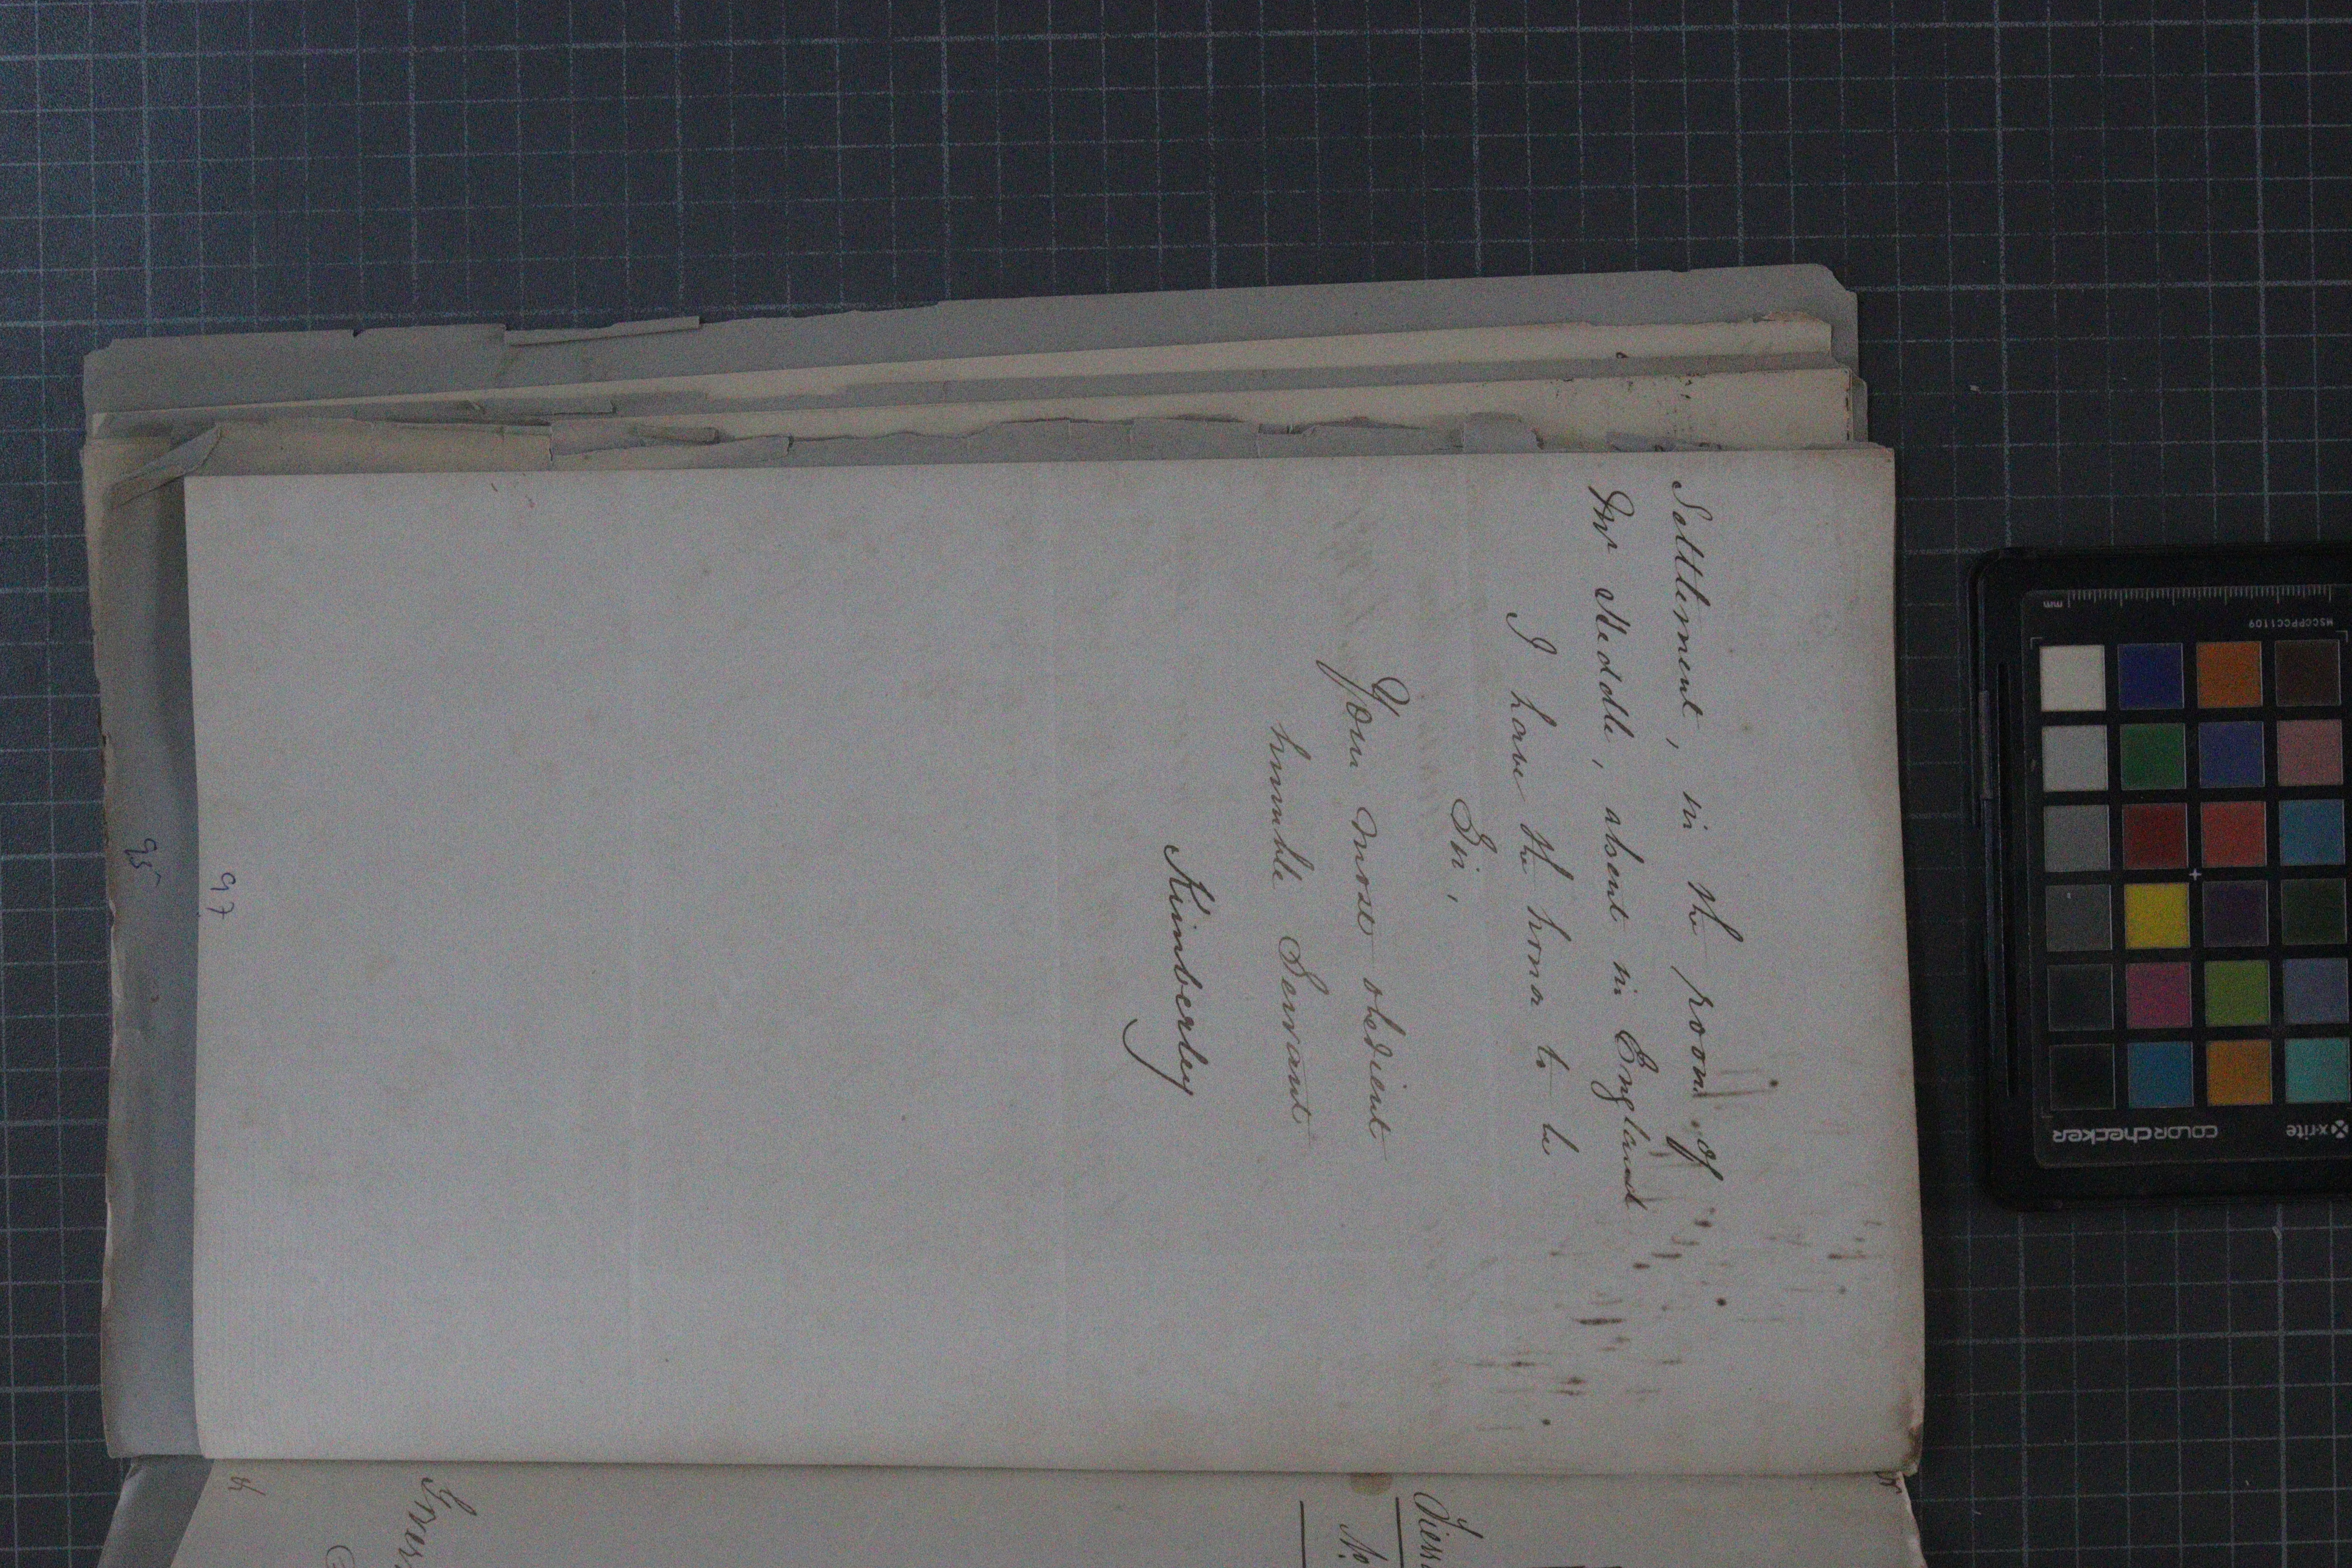 Settlement, in the room of
Mr Heddle, absent in England
I have the honor to be
Sir,
Your most obedient
humble Servant
Kimberley
97
95
No.
mm
MSCCPPCC1109
x-rite
colorchecker